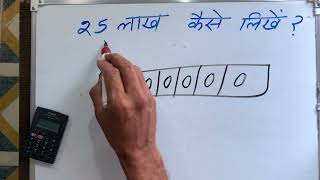 25 लाख कैसे लिखें ?
0 0 0 0 0